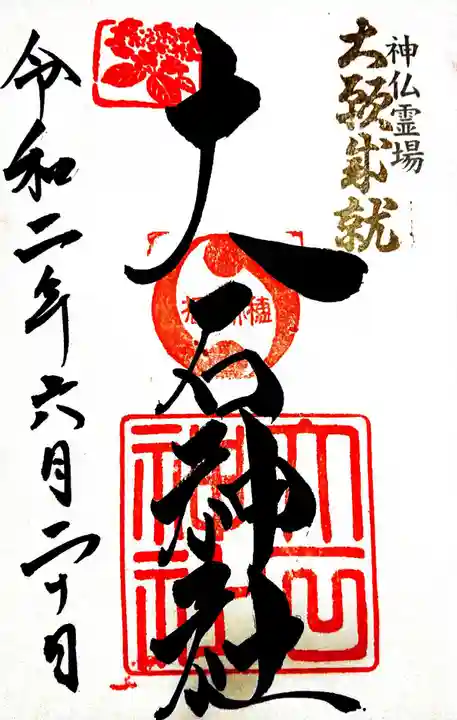 神仏霊場
大願成就
大石神社
令和二年六月二十日